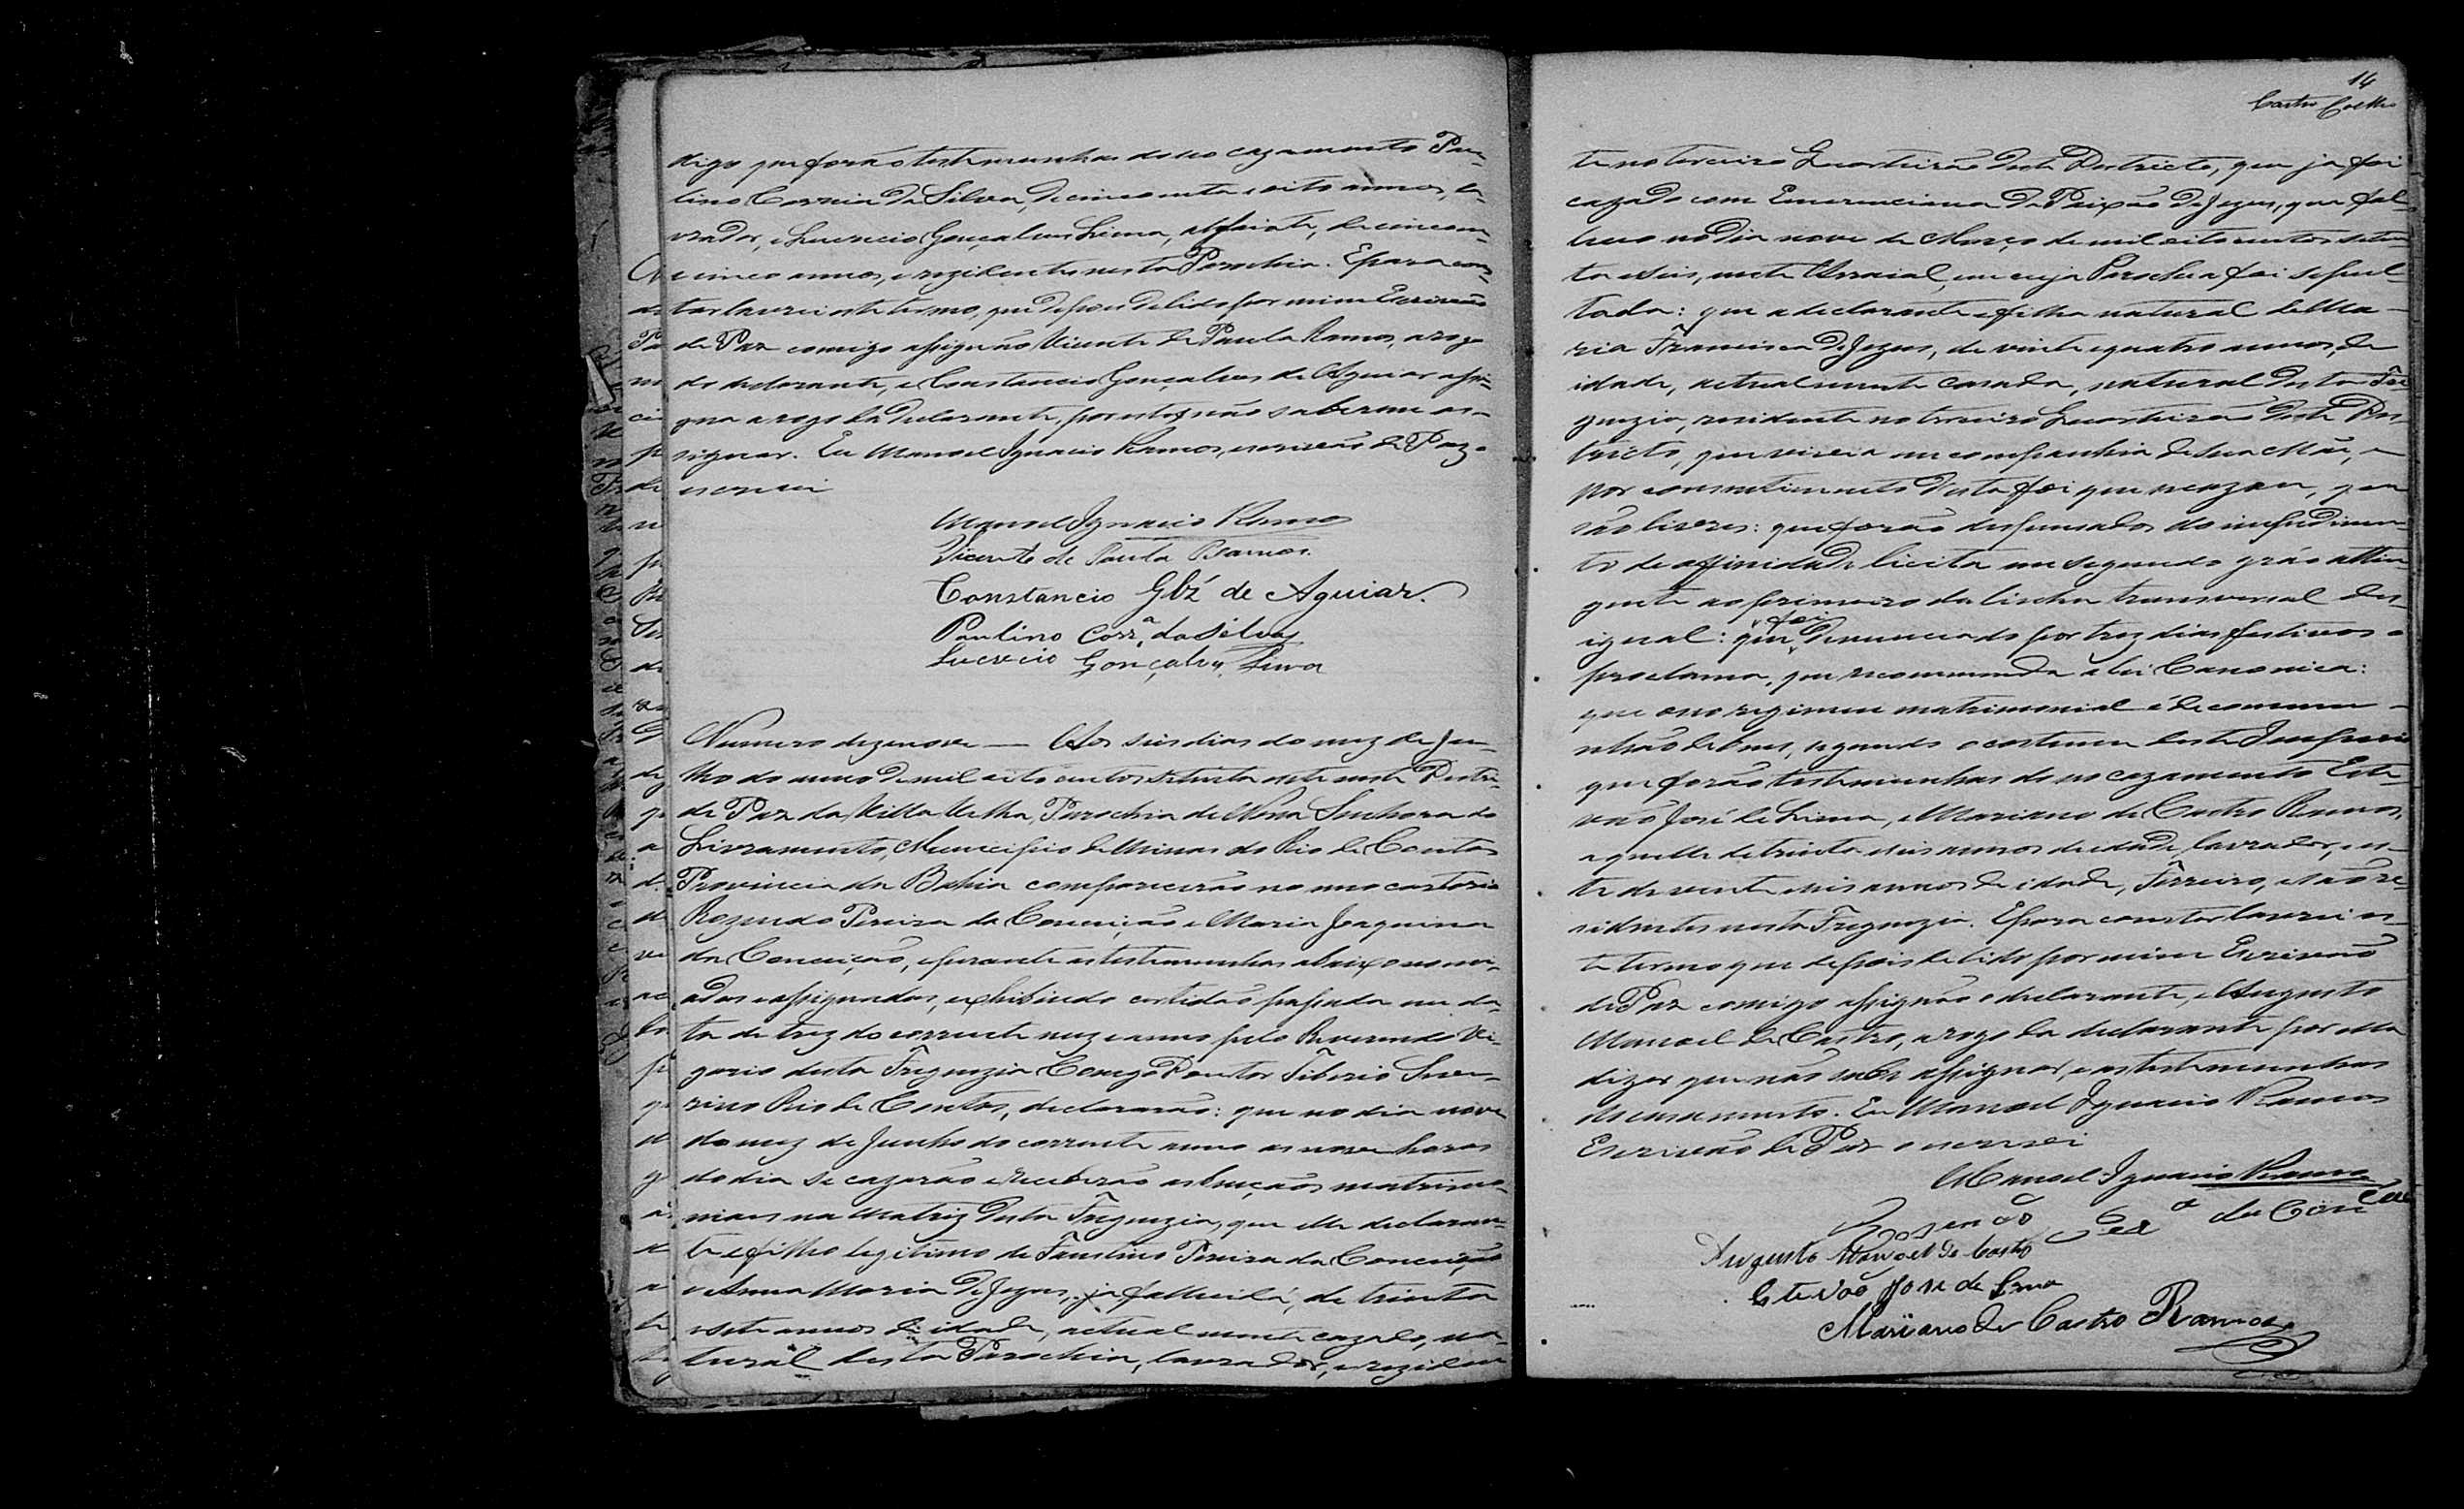 digo que forão testemunhas do seo cazamento Pau-
lino Correia da Silva, de cincoenta e oito annos, la-
vrador, e Lucrecio Gonçalves Lima, alfaiate, de cincoen-
e cinco annos, e rezidentes nesta Parochia. E para cons-
tar lavrei este termo, que depois de lido por mim Escrivão
de Paz comigo assignão Vicente de Paula Ramos, a rogo
do declarante, e Constancio Gonçalves de Aguiar assi-
gna a rogo da declarante, por estes não saberem as-
signar. Eu Manoel Ignacio Ramos, escrivão de Paz o
escrevi
Manoel Ignacio Ramos
Vicente de Paula Ramos.
Constancio Glz' de Aguiar.
Paulino Corr.ª da Silva
Lucrecio Gonçalves Lima
Numero dezenove — Aos seis dias do mez de Ju-
lho do anno de mil oito centos setenta e sete neste Destri-
de Paz da Villa Velha, Parochia de Nossa Senhora do
Livramento, Municipio de Minas do Rio de Contas
Provincia da Bahia comparecerão no meo cartorio
Rozendo Pereira da Conceição e Maria Joaquina
da Conceição, e perante as testemunhas abaixo nome-
adas e assignadas, exhibindo certidão passada em da-
ta de trez do corrente mez e anno pelo Reverendo Vi-
gario desta Freguezia Conego Doutor Tiberio Seve-
rino Rio de Contas, declararão: que no dia nove
do mez de Junho do corrente anno as nove horas
do dia se cazarão e receberão as bençãos matrimo-
niaes na Matriz desta Freguezia, que elle declaran-
te é filho legitimo de Faustino Pereira da Conceição
e Anna Maria de Jezus, ja fallecida, de trinta
e sete annos de idade, actualmente cazado, na-
tural desta Parochia, lavrador, e reziden
14
Castro Coelho
te no terceiro Quarteirão deste Destricto, que ja foi
cazado com Emerenciana da Paixão de Jezus, que fal-
leceo no dia nove de Março de mil oito centos seten-
ta e seis, neste Arraial, em cuja Parochia foi sepul-
tada: que a declarante é filha natural de Ma-
ria Francisca de Jezus, de vinte e quatro annos de
idade, actualmente casada, natural desta Fre-
guezia, residente no terceiro Quarteirão deste Des-
tricto, que vivia em companhia de sua Mãe, e
por consentimento desta foi que se cazou, que
são livres: que forão dispensados do impedimen-
to de affinidade licita em segundo gráo attin-
gente ao primeiro da linha transversal des-
igual: que foi denunciado por trez dias festivos o
proclama, que recommenda a lei Canonica:
que o seo regimen matrimonial é de commu-
nhão de bens, segundo o costume deste Imperio
que forão testemunhas do seo cazamento Este-
vão José de Lima, e Mariano de Castro Ramos,
aquelle de trinta e seis annos de idade, lavrador, es-
te de vinte e seis annos de idade, Ferreiro, e são re-
sidentes nesta Freguezia. E para constar lavrei es-
te termo que depois de lido por mim Escrivão
de Paz comigo assignão o declarante, e Augusto
Manoel de Castro, a rogo da declarante por ella
dizer que não sabe assignar, e as testemunhas
do casamento. Eu Manoel Ignacio Ramos
Escrivão de Paz o escrevi
Manoel Ignacio Ramos
Rosendo Per.ª da Conc
Augusto Manoel de Castro
Estevão Jose de Lima
Mariano de Castro Ramos